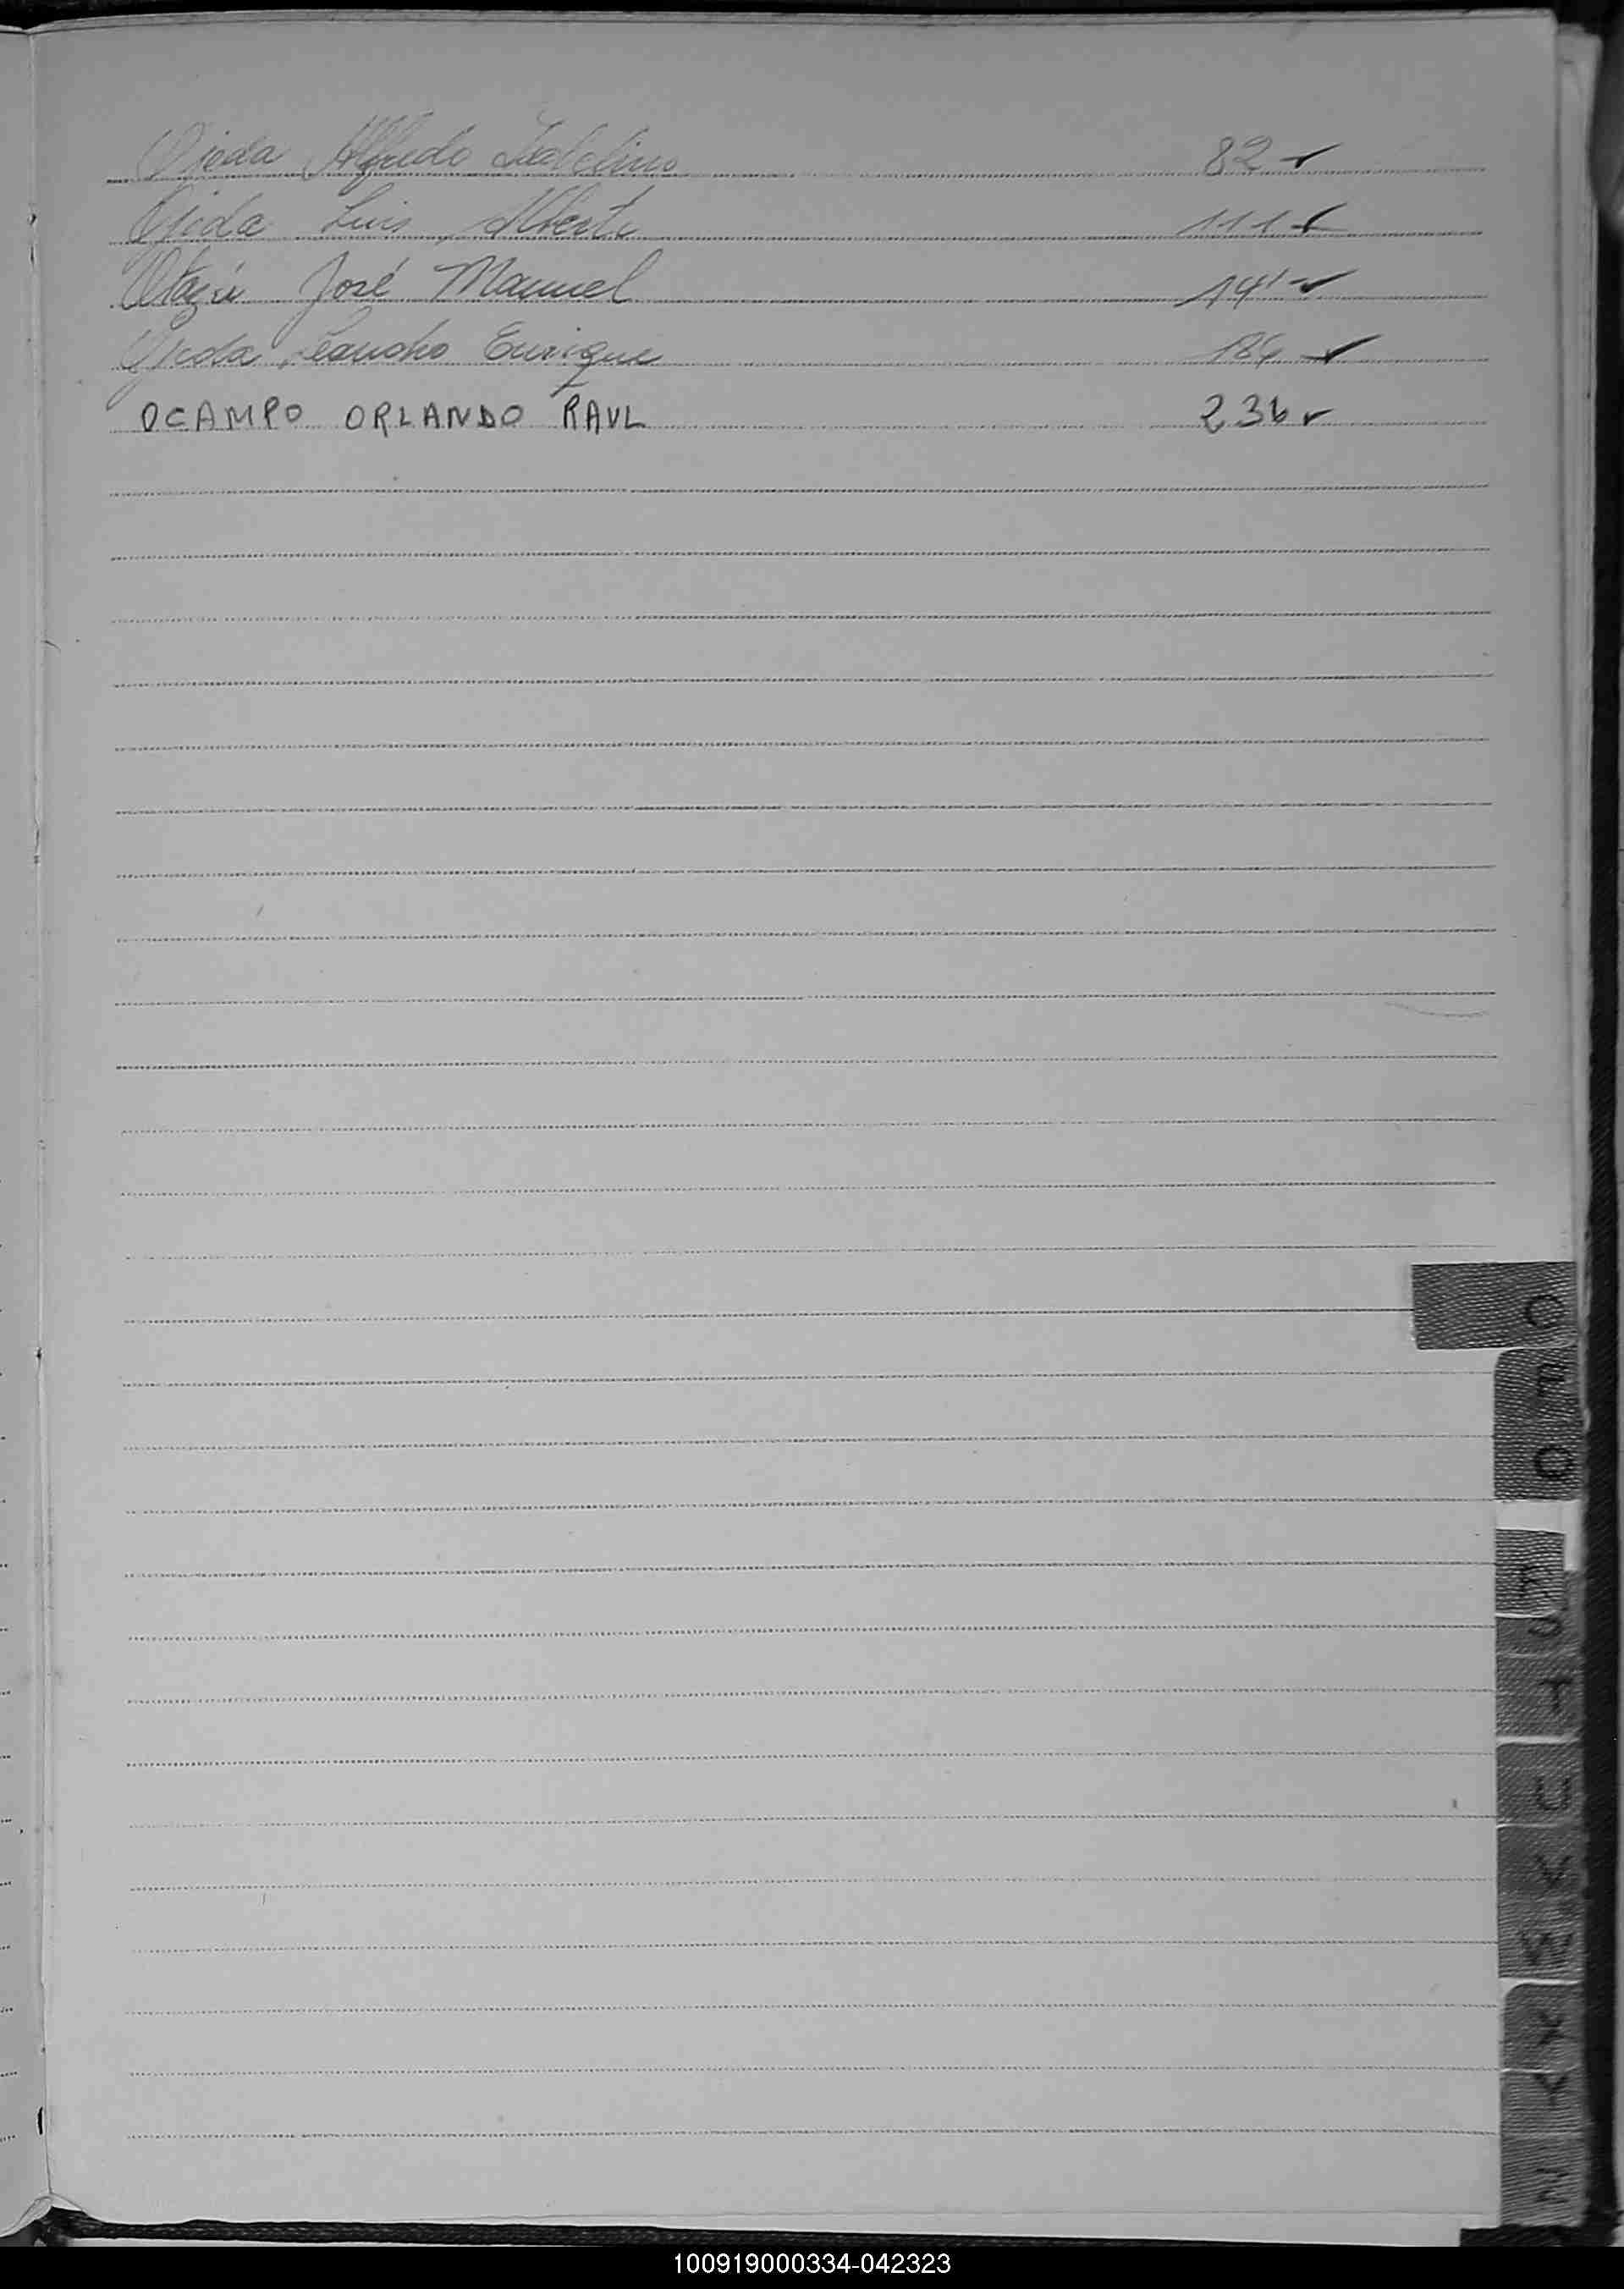 Ojeda Alfredo Isabelino 82 ✓
Ojeda Luis Alberto 111 ✓
Otazú José Manuel 141 ✓
Ojeda Leandro Enrique 184 ✓
OCAMPO ORLANDO RAUL 236 ✓
O
P
Q
S
T
U
V
W
X
Y
Z
100919000334-042323